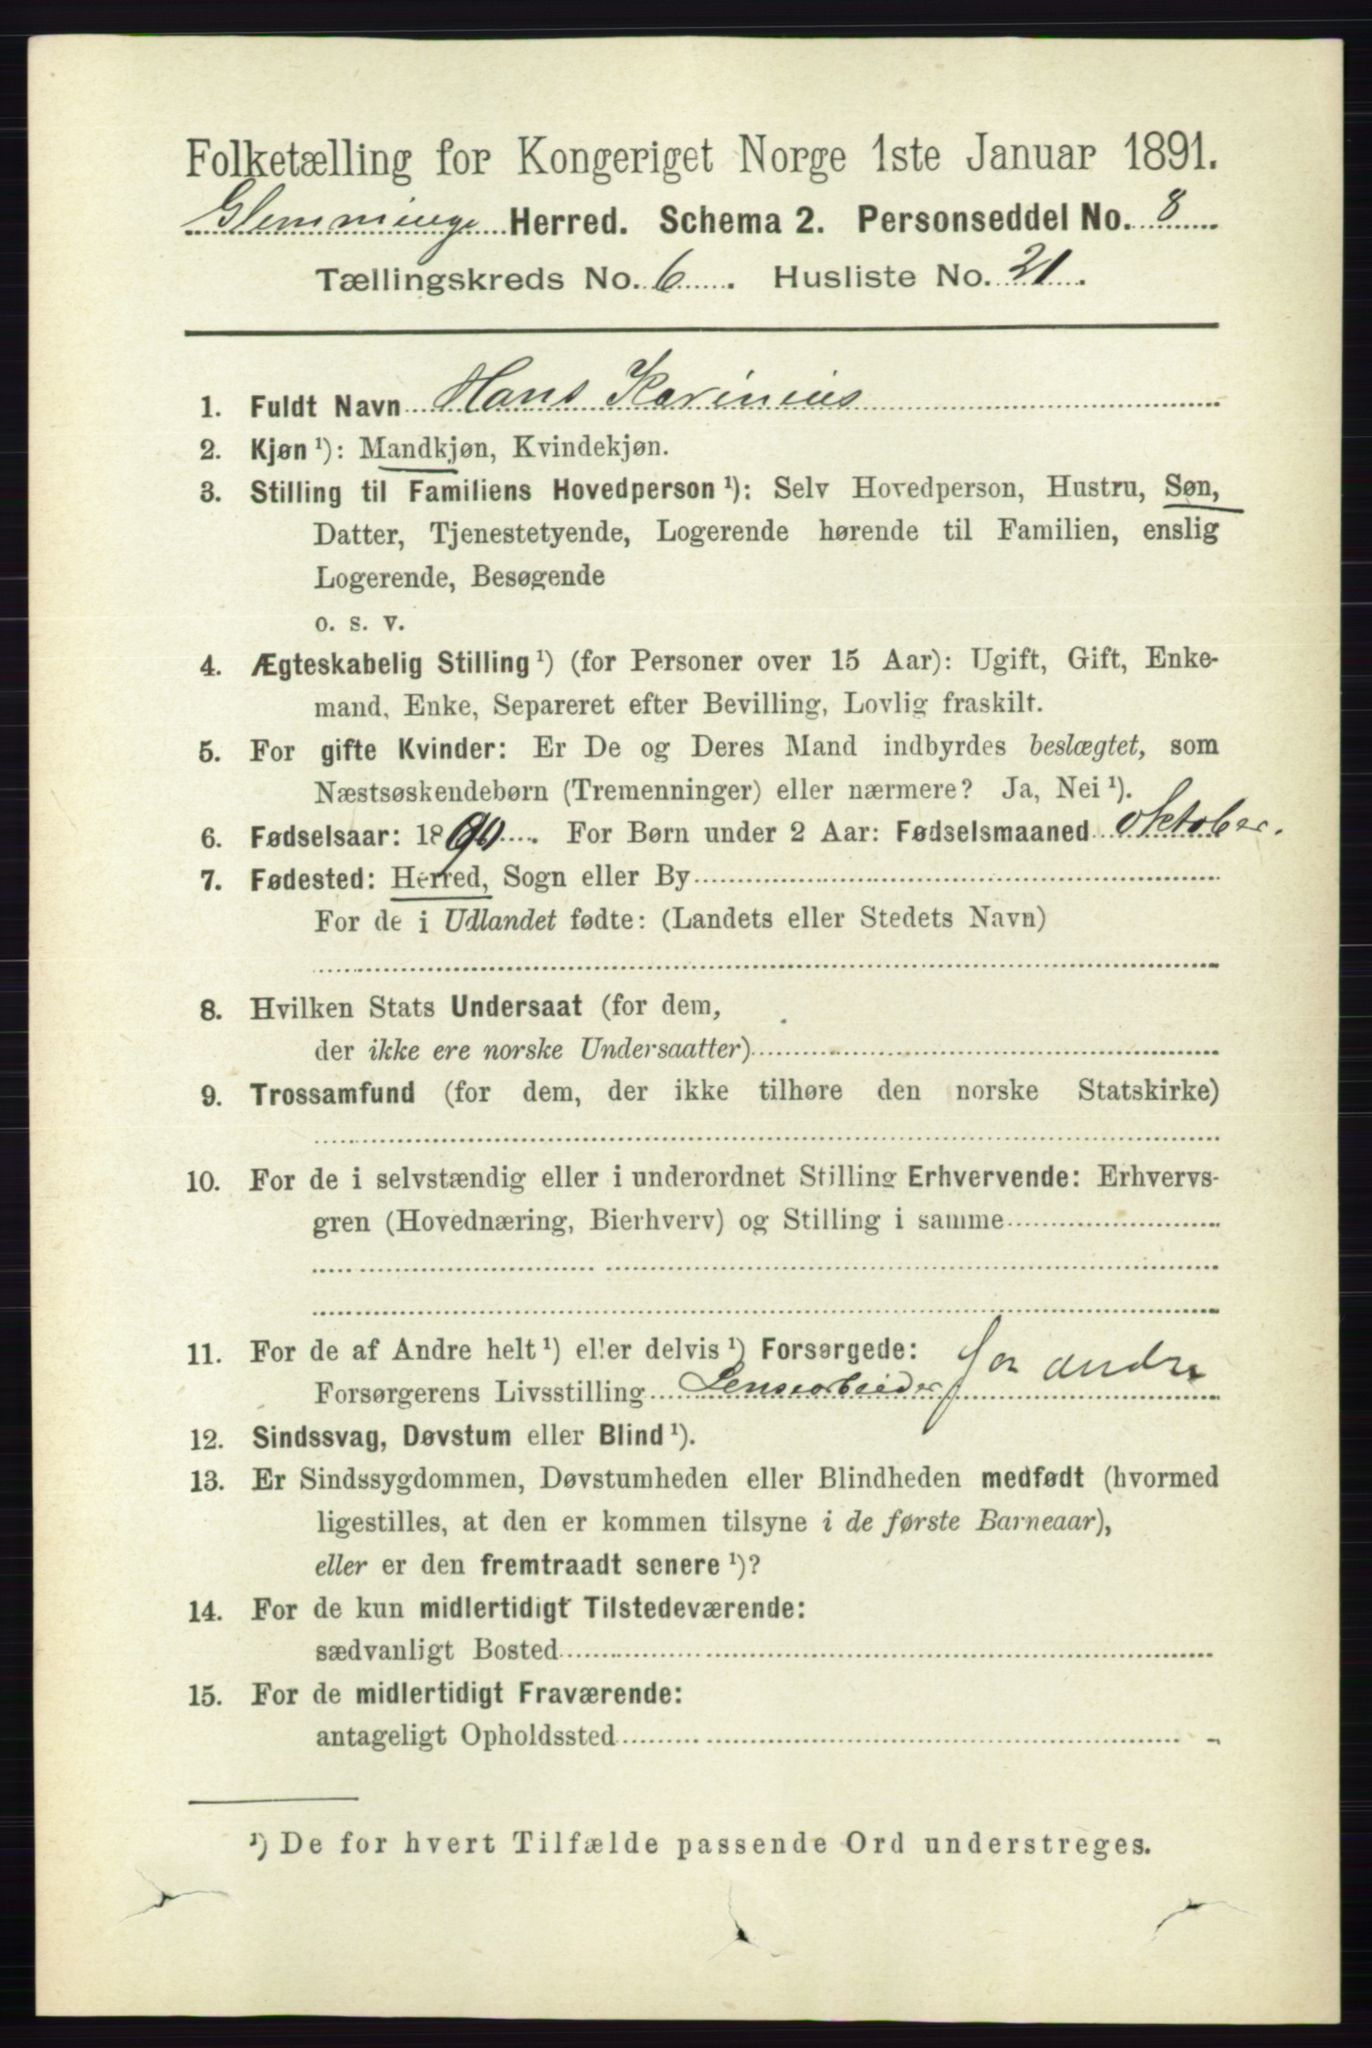 Folketælling for Kongeriget Norge 1ste Januar 1891.
Glemminge Herred. Schema 2. Personseddel No. 8
Tællingskreds No. 6. Husliste No. 21.
1. Fuldt Navn Hans Karinius
2. Kjøn ¹): Mandkjøn, Kvindekjøn.
3. Stilling til Familiens Hovedperson ¹): Selv Hovedperson, Hustru, Søn,
Datter, Tjenestetyende, Logerende hørende til Familien, enslig
Logerende, Besøgende
o. s. v.
4. Ægteskabelig Stilling ¹) (for Personer over 15 Aar): Ugift, Gift, Enke-
mand, Enke, Separeret efter Bevilling, Lovlig fraskilt.
5. For gifte Kvinder: Er De og Deres Mand indbyrdes beslægtet, som
Næstsøskendebørn (Tremenninger) eller nærmere? Ja, Nei ¹).
6. Fødselsaar: 1890. For Børn under 2 Aar: Fødselsmaaned Oktober.
7. Fødested: Herred, Sogn eller By
For de i Udlandet fødte: (Landets eller Stedets Navn)
8. Hvilken Stats Undersaat (for dem,
der ikke ere norske Undersaatter)
9. Trossamfund (for dem, der ikke tilhøre den norske Statskirke)
10. For de i selvstændig eller i underordnet Stilling Erhvervende: Erhvervs-
gren (Hovednæring, Bierhverv) og Stilling i samme
11. For de af Andre helt ¹) eller delvis ¹) Forsørgede:
Forsørgerens Livsstilling Lensearbeider for andre
12. Sindssvag, Døvstum eller Blind ¹).
13. Er Sindssygdommen, Døvstumheden eller Blindheden medfødt (hvormed
ligestilles, at den er kommen tilsyne i de første Barneaar),
eller er den fremtraadt senere ¹)?
14. For de kun midlertidigt Tilstedeværende:
sædvanligt Bosted
15. For de midlertidigt Fraværende:
antageligt Opholdssted
¹) De for hvert Tilfælde passende Ord understreges.